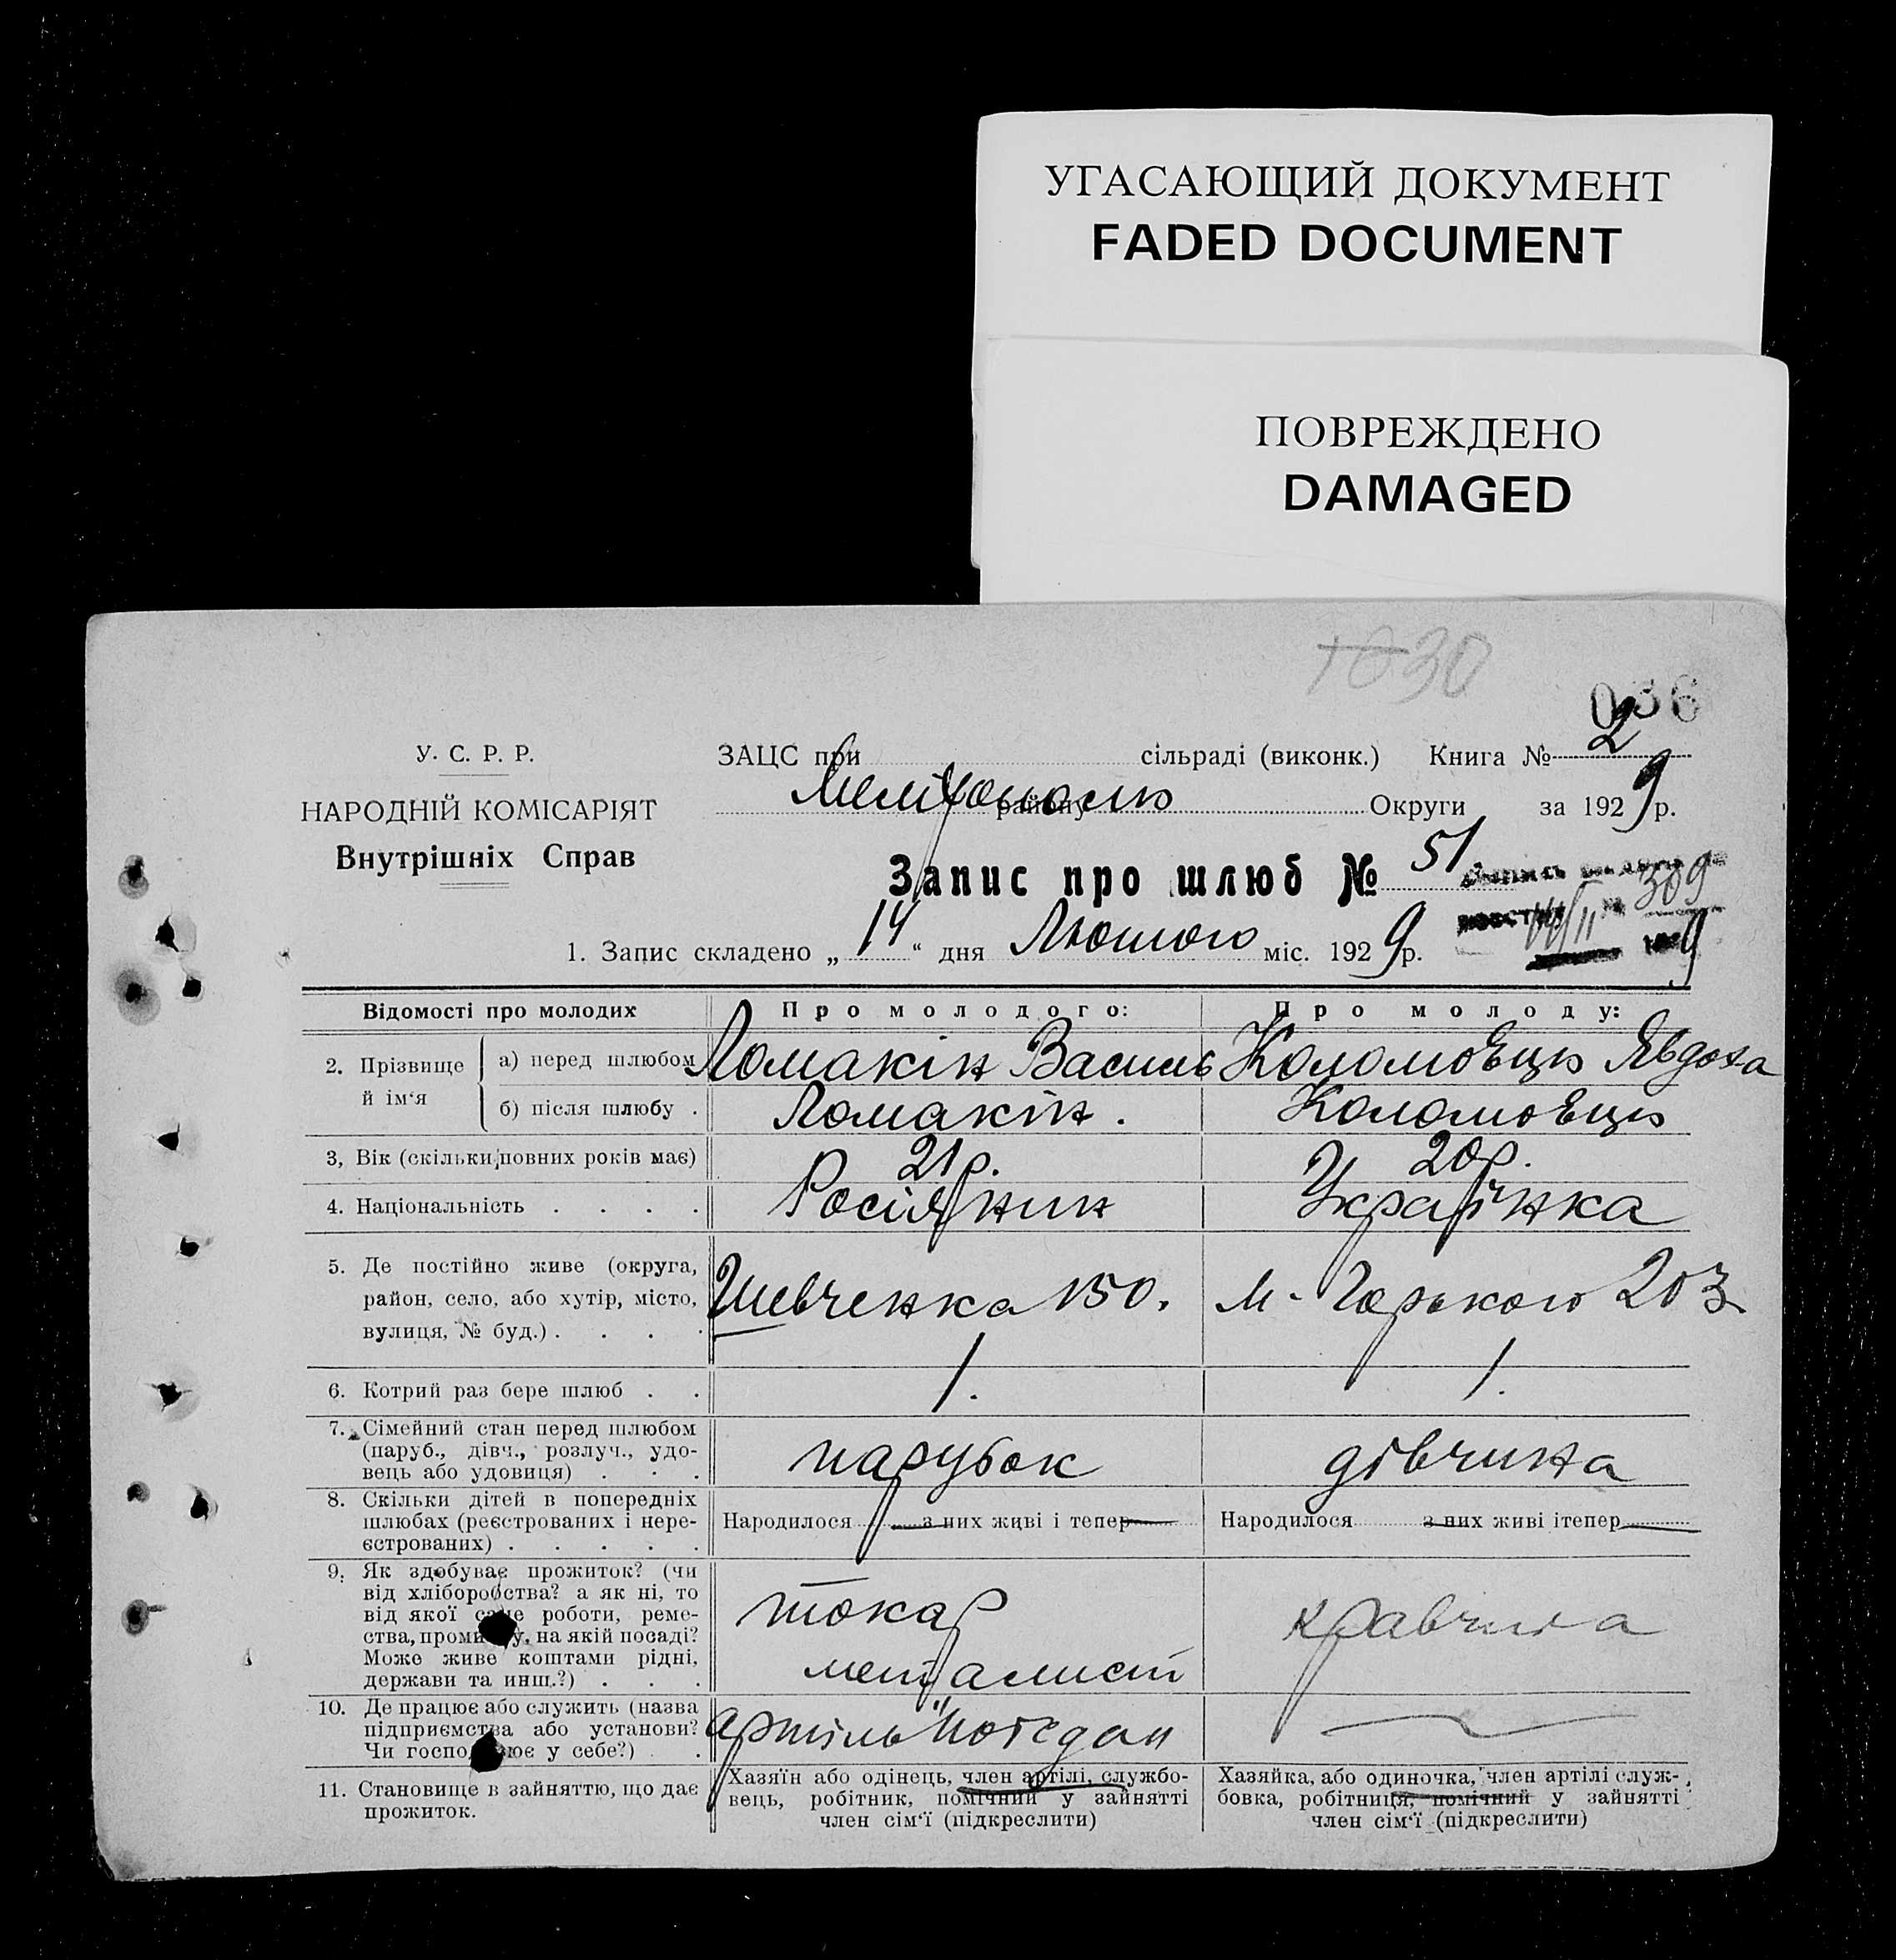 УГАСАЮЩИЙ ДОКУМЕНТ
FADED DOCUMENT
ПОВРЕЖДЕНО
DAMAGED
1030
036
У. С. Р. Р.
НАРОДНІЙ КОМІСАРІЯТ
Внутрішніх Справ
ЗАЦС при сільраді (виконк.) Книга № 2
Мелітополь району Округи за 1929 р.
Запис про шлюб № 51
309
14/II 9
1. Запис складено „14“ дня Лютого міс. 1929 р.
Відомості про молодих
Про молодого:
Про молоду:
2. Прізвище й ім‘я
а) перед шлюбом Ломакін Василь Коломоєць Явдоха
б) після шлюбу . Ломакін. Коломоєць
3, Вік (скільки повних років має) 21 р. 20 р.
4. Національність . . . . Росіянин Українка
5. Де постійно живе (округа,
район, село, або хутір, місто,
вулиця, № буд.) . . . .
Шевченка 150.
М. Горького 203
6. Котрий раз бере шлюб . . 1. 1.
7. Сімейний стан перед шлюбом
(паруб., дівч., розлуч., удо-
вець або удовиця) . . .
парубок
дівчина
8. Скільки дітей в попередніх
шлюбах (реєстрованих і нере-
єстрованих) . . . . .
Народилося з них живі і тепер
Народилося з них живі ітепер
9. Як здобуває прожиток? (чи
від хліборобства? а як ні, то
від якої саме роботи, реме-
ства, промислу, на якій посаді?
Може живе коштами рідні,
держави та инш.?) . . .
токар
металист
кравчиха
10. Де працює або служить (назва
підприємства або установи?
Чи господарює у себе?) . .
артіль
11. Становище в зайняттю, що дає
прожиток.
Хазяїн або одінець, член артілі, службо-
вець, робітник, помічний у зайнятті
член сім‘ї (підкреслити)
Хазяйка, або одиночка, член артілі служ-
бовка, робітниця, помічний у зайнятті
член сім‘ї (підкреслити)